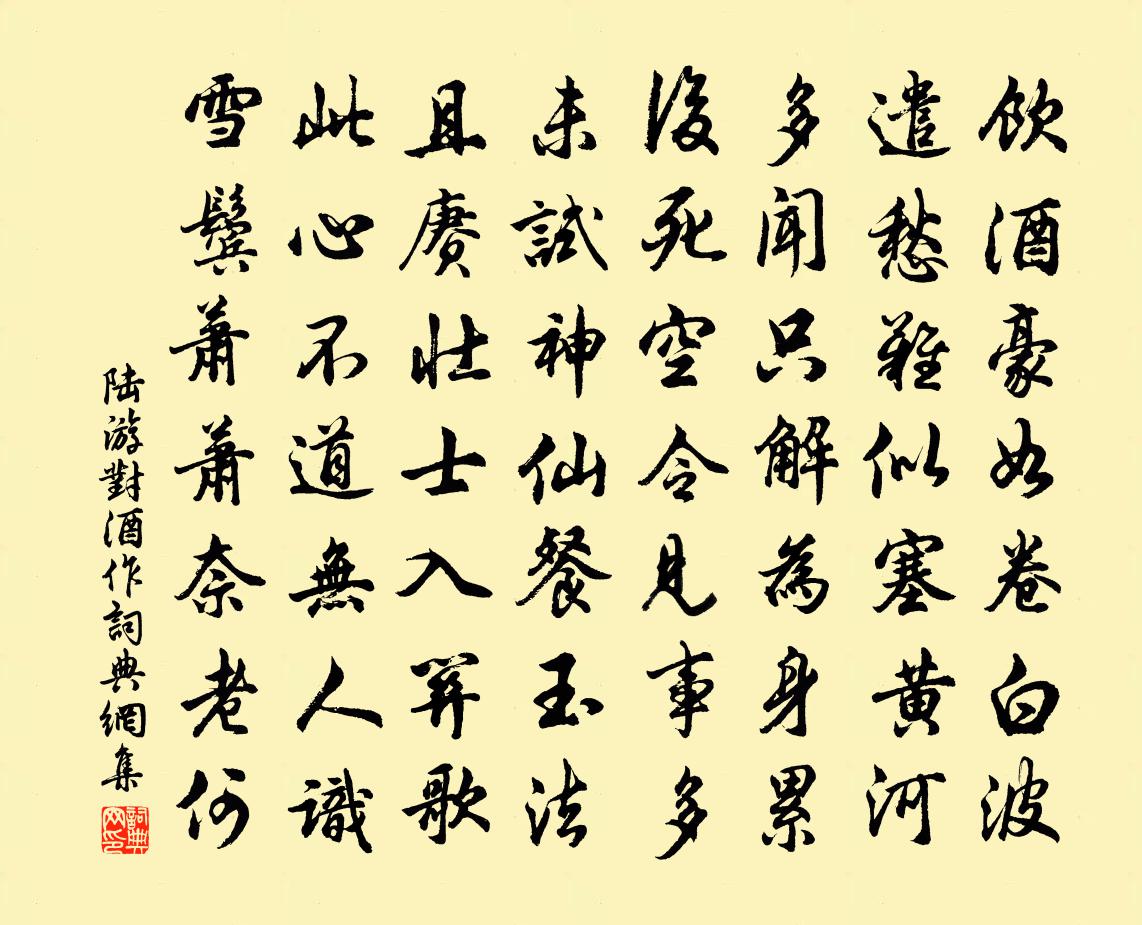 飲酒豪如卷白波
遣愁難似塞黄河
多聞只解為身累
後死空令見事多
未試神仙餐玉法
且賡壯士入關歌
此心不道無人識
雪鬢蕭蕭奈老何
陸游對酒作詞典網集
詞典網印